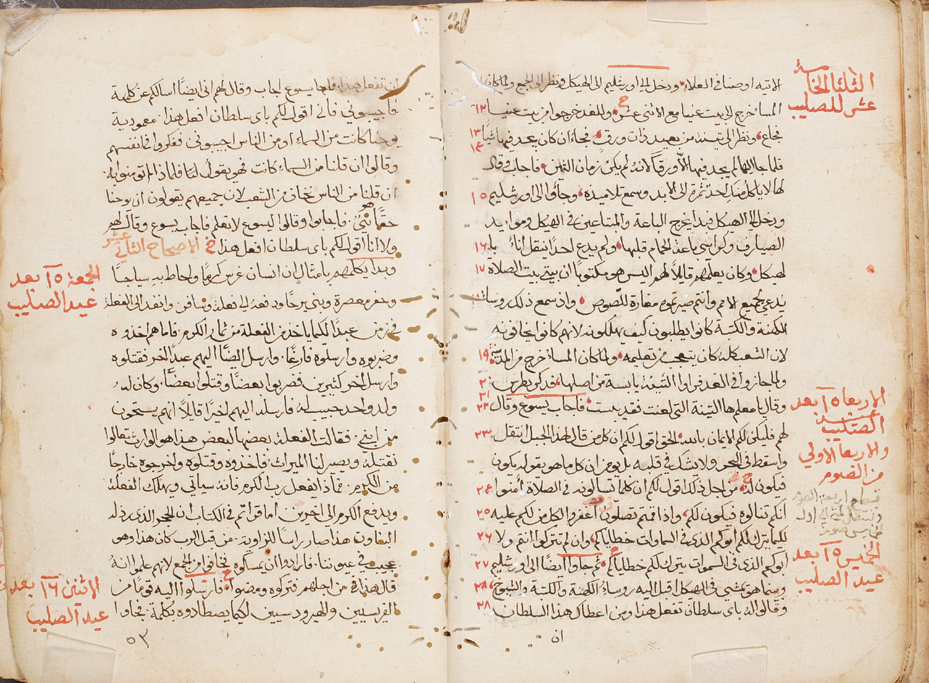 الاتيه اوصنا في العلا ودخل الي اورشليم الي الهيكل ونظر الي الجمع ولما كان
المسا خرج الي بيت عنيا مع الاثني عشر وللغد خرجوا من بيت عنيا ١٢
فجاع ونظر الي تينه من بعيد ذات ورق فجاء ان كان يجد فيها شيا ١٣
فلما جا اليها لم يجد فيها الا ورقا لانه لم يكن زمان التين فاجاب وقال ١٤
لها لا ياكل احد ثمره الي الابد وسمع تلاميذه وجاوا الي اورشليم ١٥
ودخل الي الهيكل فبدا يخرج الباعة والمبتاعين في الهيكل وموايد
الصيارف وكراسي باعة الحمام قلبها ولم يدع احدا ينقل انا ١٦
الهيكل وكان يعلمهم قايلا لهم اليس هو مكتوبا ان بيتي بيت الصلاه ١٧
يدعي لجميع الامم وانتم صيرتموه مغارة للصوص وان سمع ذلك روسا
الكهنة والكتبة كانوا يطلبون كيف يهلكونه لانهم كانوا يخافونه
لان الشعب كله كان يتعجب من تعليمه ولما كان المسا خرج من المدينة ١٩
ولما جازوا في الغد فراوا التينة يابسة من اصلها فذكر بطرس ٢٠
وقال يا معلم ها التينة التي لعنت فقد يبست فاجاب يسوع وقال ٢١ ٢٢
لهم فليكن لكم الايمان بالله الحق اقول لكم ان كل من قال لهذا الجبل انتقل ٢٣
واسقط في البحر ولا يشك في قلبه بل يومن ان كل ما هو يقوله يكون
فيكون له من اجل ذلك اقول لكم ان كلما تسالونه في الصلاة امنوا ٢٤
انكم تنالوه فيكون لكم واذا قمتم تصلون اغفروا لكل من لكم عليه ٢٥
لكيما يترك لكم ابوكم الذي في السماوات خطاياكم وان لم تتركوا انتم ولا ٢٦
ابوكم الذي في السموات يترك لكم خطاياكم ثم جاوا ايضا الي اورشليم ٢٧
وبينما هو يمشي في الهيكل اقبل اليه روسا الكهنة والكتبة والشيوخ
وقالوا له باي سلطان تفعل هذا ومن اعطاك هذا السلطان ٢٨
ان
الثلثا الخامسة
عشر للصليب
الاربعا ١٥ بعد
عيد الصليب
والاربعا الاولي
من الصوم
الخميس ١٥ بعد
عيد الصليب
ان تفعل هذا فاجاب يسوع وقال لهم اني ايضا اسالكم عن كلمة
فاجيبوني فاني اقول لكم باي سلطان افعل هذا معمودية
يوحنا كانت من السماء او من الناس اجيبوني ففكروا في انفسهم
وقالوا ان قلنا من السماء كانت فهو يقول لنا فلماذا لم تومنوا به
ان قلنا من الناس نخاف من الشعب لان جميعهم يقولون ان يوحنا
حقا نبي هو فاجابوا وقالوا ليسوع لا نعلم فاجاب يسوع وقال لهم
ولا انا اقول لكم باي سلطان افعل هذا الاصحاح الثاني عشر
وبدا يكلمهم بامثال ان انسان غرس كرما واحاط به سياجا
وحفر معصرة وبني برجا ودفعه الي فعلة وسافر وانفذ الي الفعلة
في زمن عبدا لكيما ياخذ من الفعلة من ثمار الكرم فاما هم اخذوه
وضربوه وارسلوه فارغا وارسل ايضا اليهم عبدا اخر فقتلوه
وارسل اخر كثيرين فضربوا بعضا وقتلوا بعضا وكان له
ولد واحد حبيب له فارسله اليهم اخيرا قايلا انهم يستحون
من ابني فقالت الفعلة بعضها لبعض هذا هو الوارث تعالوا
نقتله ويصير لنا الميراث فاخذوه وقتلوه واخرجوه خارجا
من الكرم فماذا يفعل رب الكرم فانه سياتي ويهلك الفعلة
ويدفع الكرم الي اخرين اما قراتم في الكتاب ان الحجر الذي رذله
البناون هذا صار راسا للزاوية من قبل الرب كان هذا وهو
عجيب في عيوننا فارادوا ان يمسكوه فخافوا من الجمع لانهم علموا انه
قال هذا في من اجلهم فتركوه ومضوا فارسلوا اليه قوما من
الفريسيين والهيرودسيين لكيما يصطادوه بكلمة فجاوا
٥٣
الجمعة ١٥ بعد
عيد الصليب
الاثنين ١٦ بعد
عيد الصليب